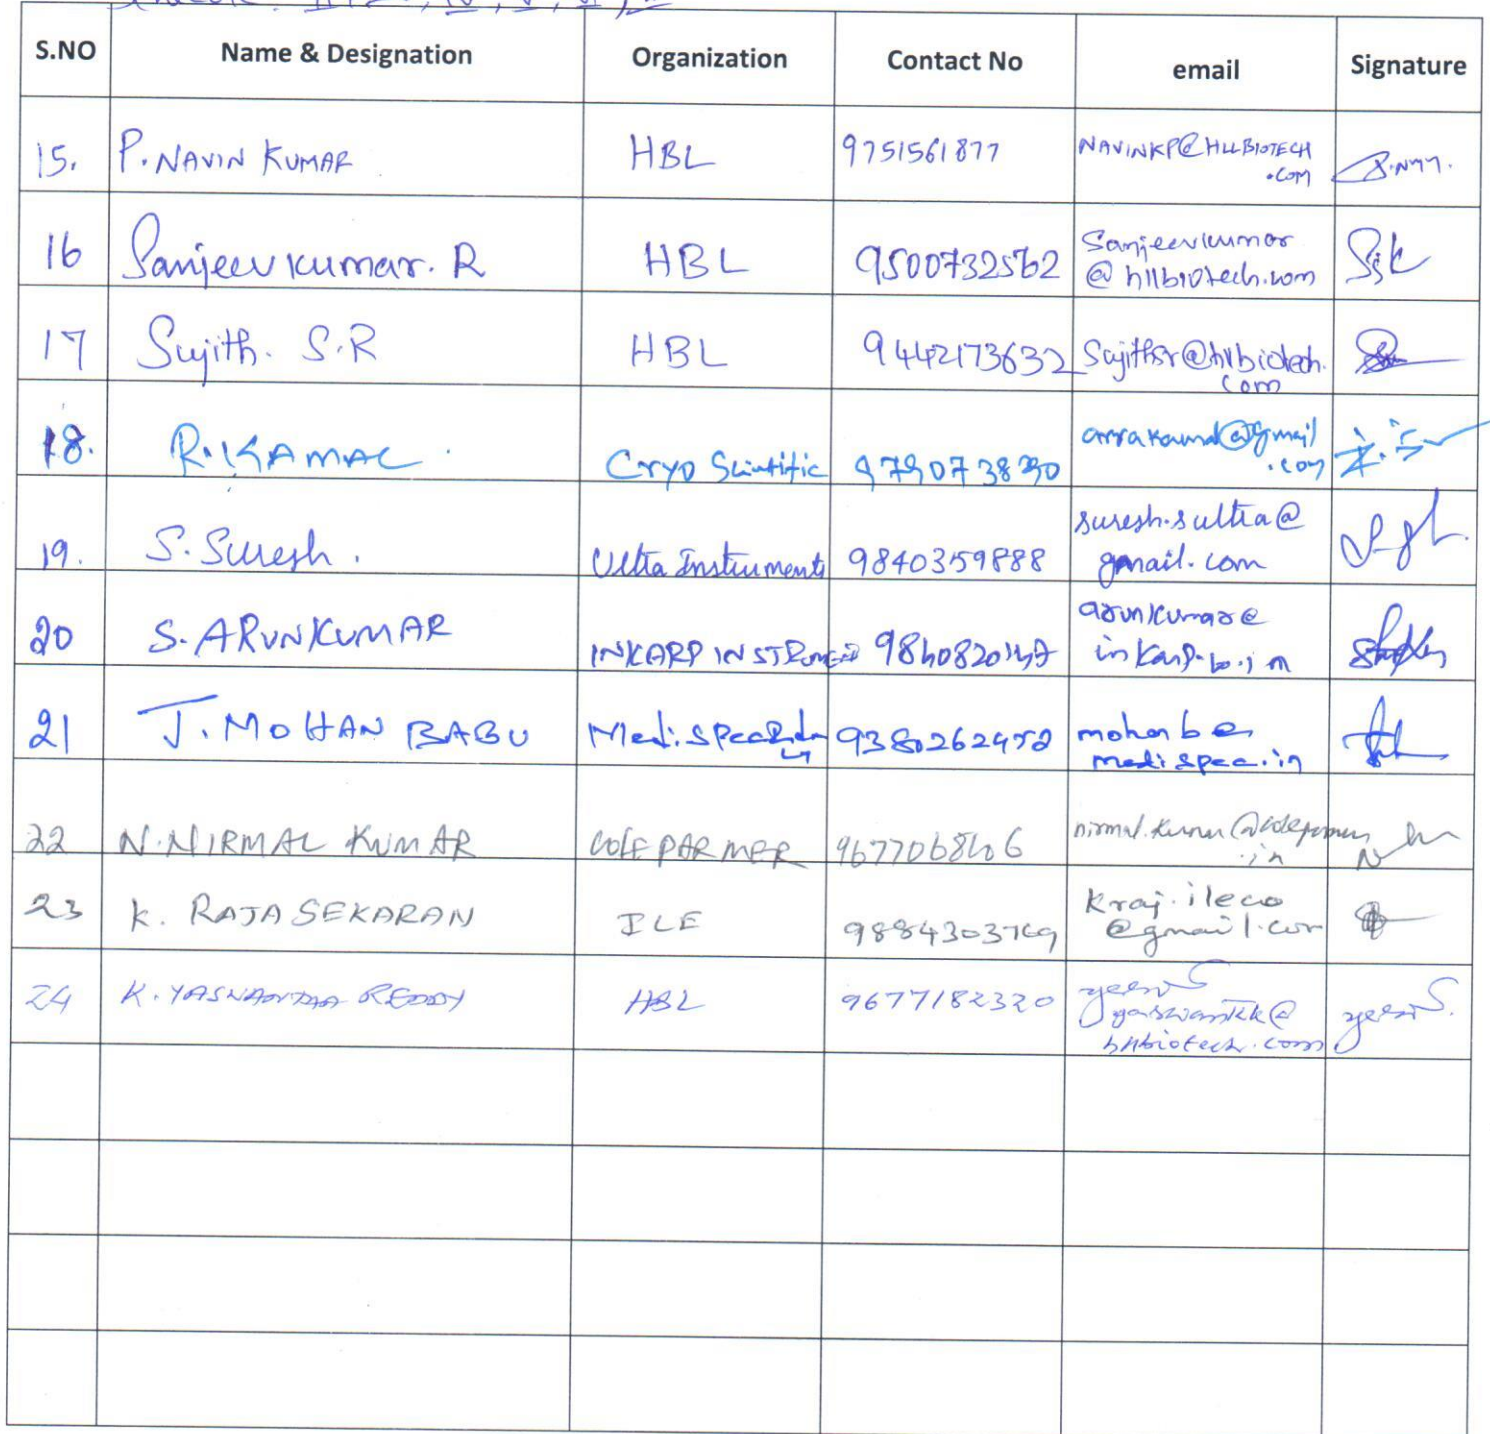 S.NO Name & Designation Organization Contact No email Signature
15. P. NAVIN KUMAR HBL 9751561877 NAVINKP@HLLBIOTECH
.COM
16 Sanjeevkumar. R HBL 9500732562 Sanjeevkumar
@hllbiotech.com
17 Sujith. S.R HBL 9442173632 Sujithsr@hllbiotech.
com
18. R. KAMAL Cryo Scientific @gmail
.com
19. S. Suresh. Ultra Instruments 9840359888 suresh.sultra@
gmail.com
20 S. ARUNKUMAR INKARP arunkumar@
21 J. MOHAN BABU mohanb@
medispec.in
22 N. NIRMAL KUMAR COLE PARMER nirmal.kumar@coleparmer
.in
23 K. RAJASEKARAN ILE kraj.ileco
@gmail.com
24 K. REDDY HBL 9677182320
hllbiotech.com